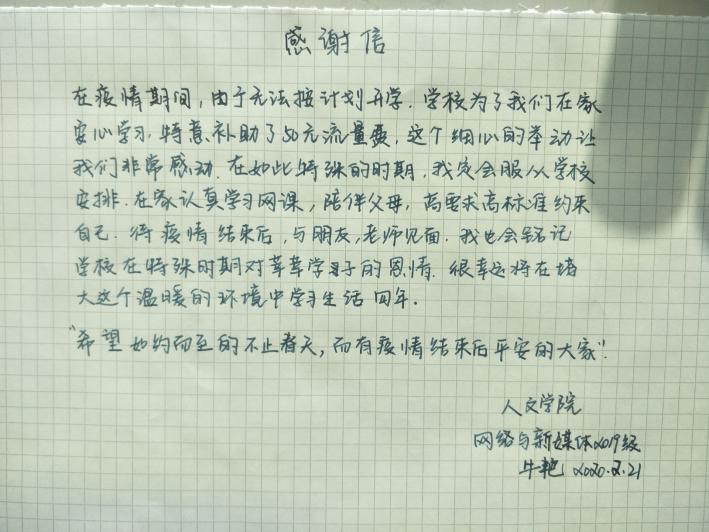 感谢信
在疫情期间，由于无法按计划开学.学校为了我们在家
安心学习.特意补助了50元流量费.这个细心的举动让
我们非常感动.在如此特殊的时期.我定会服从学校
安排.在家认真学习网课，陪伴父母，高要求高标准约束
自己.待疫情结束后，与朋友，老师见面.我也会铭记
学校在特殊时期对莘莘学子的恩情.很幸运将在塔
大这个温暖的环境中学习生活四年.
“希望如约而至的不止春天，而有疫情结束后平安的大家”.
人文学院
网络与新媒体2019级
牛艳 2020.2.21